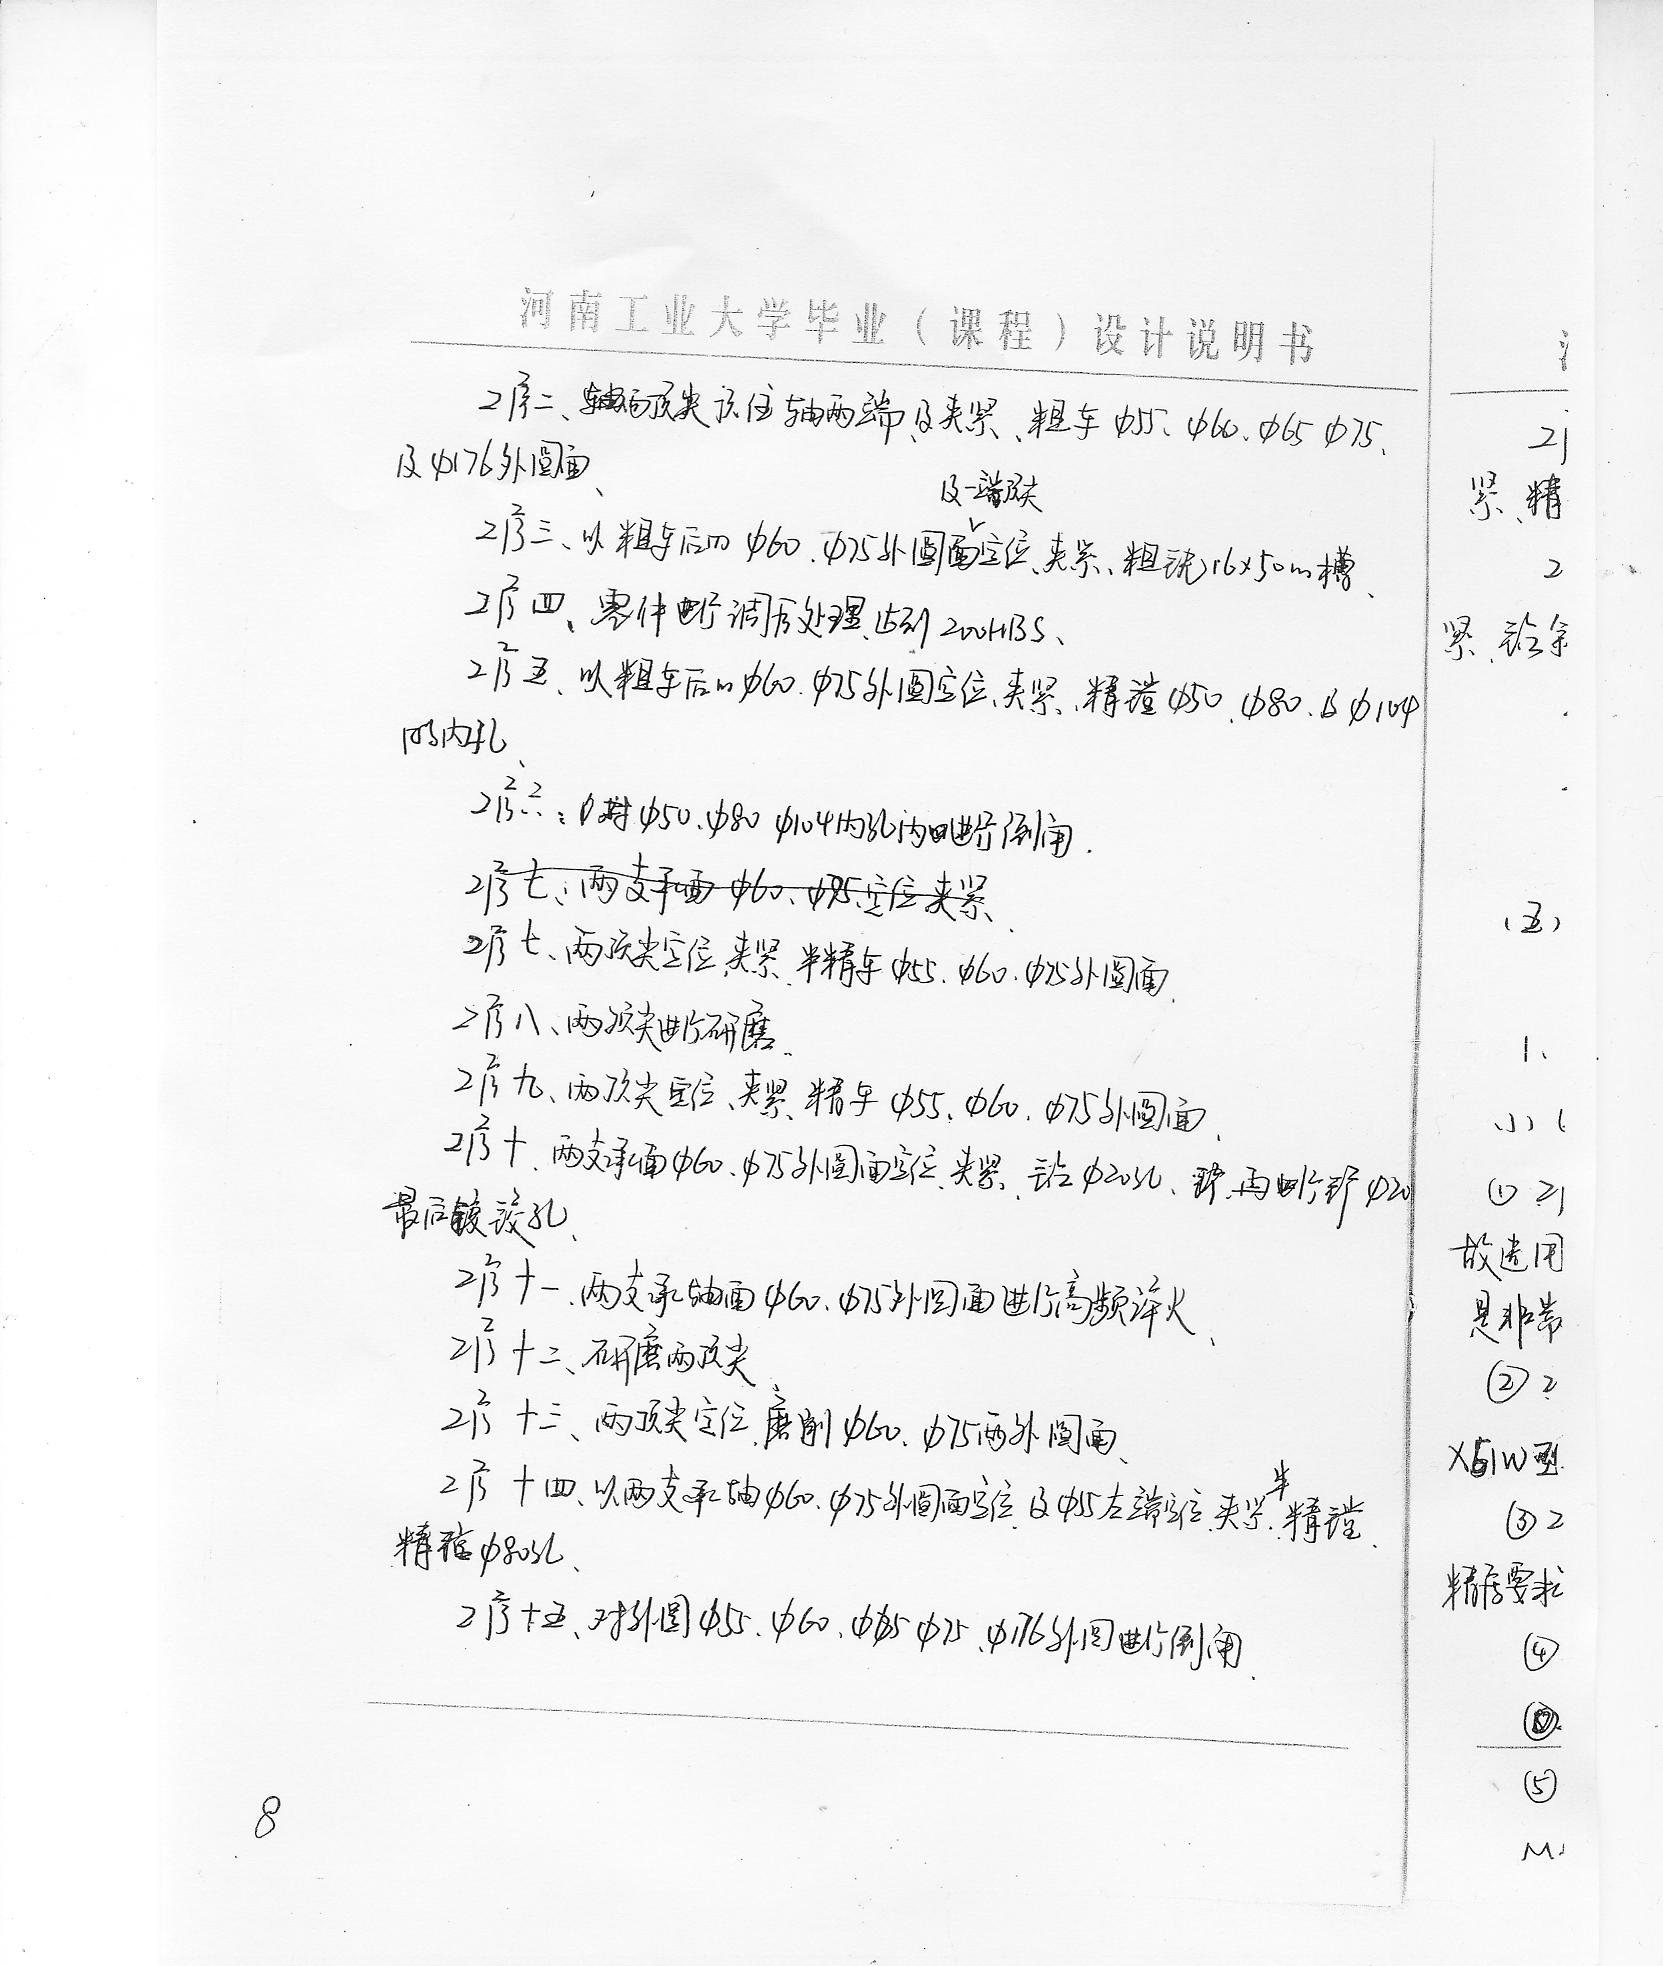 河南工业大学毕业（课程）设计说明书
工序二、两顶尖顶住轴两端、及夹紧、粗车φ55、φ60、φ65 φ75、
及φ176外圆面、
及一端顶尖
工序三、以粗车后的φ60、φ75外圆面定位、夹紧、粗铣16×50的槽、
工序四、零件进行调质处理、达到200HBS、
工序五、以粗车后的φ60、φ75外圆定位、夹紧、精镗φ50、φ80、及φ104
的内孔、
工序六、对φ50、φ80 φ104内孔内进行倒角.
工序七、两支承面φ60、φ75定位夹紧、
工序七、两顶尖定位、夹紧、半精车φ55、φ60、φ75外圆面、
工序八、两顶尖进行研磨、
工序九、两顶尖定位、夹紧、精车φ55、φ60、φ75外圆面、
工序十、两支承面φ60、φ75外圆面定位、夹紧、钻φ20孔、再进行φ20
最后铰孔、
工序十一、两支承轴面φ60、φ75外圆面进行高频淬火、
工序十二、研磨两顶尖、
工序十三、两顶尖定位、磨削φ60、φ75两外圆面、
半
工序十四、以两支承轴φ60、φ75外圆面定位、及φ55左端定位、夹紧、精镗、
精镗φ80孔、
工序十五、对外圆φ55、φ60、φ65 φ75、φ176外圆进行倒角、
8
紧、精
紧、钻
（五）
1、
①
故选用
是非常
②
X51W型
③
精度要求
④
⑤
M